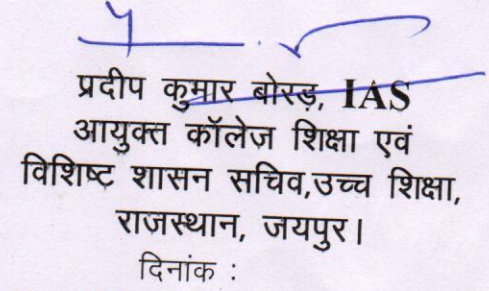 प्रदीप कुमार बोरड़, IAS
आयुक्त कॉलेज शिक्षा एवं
विशिष्ट शासन सचिव,उच्च शिक्षा,
राजस्थान, जयपुर।
दिनांक :